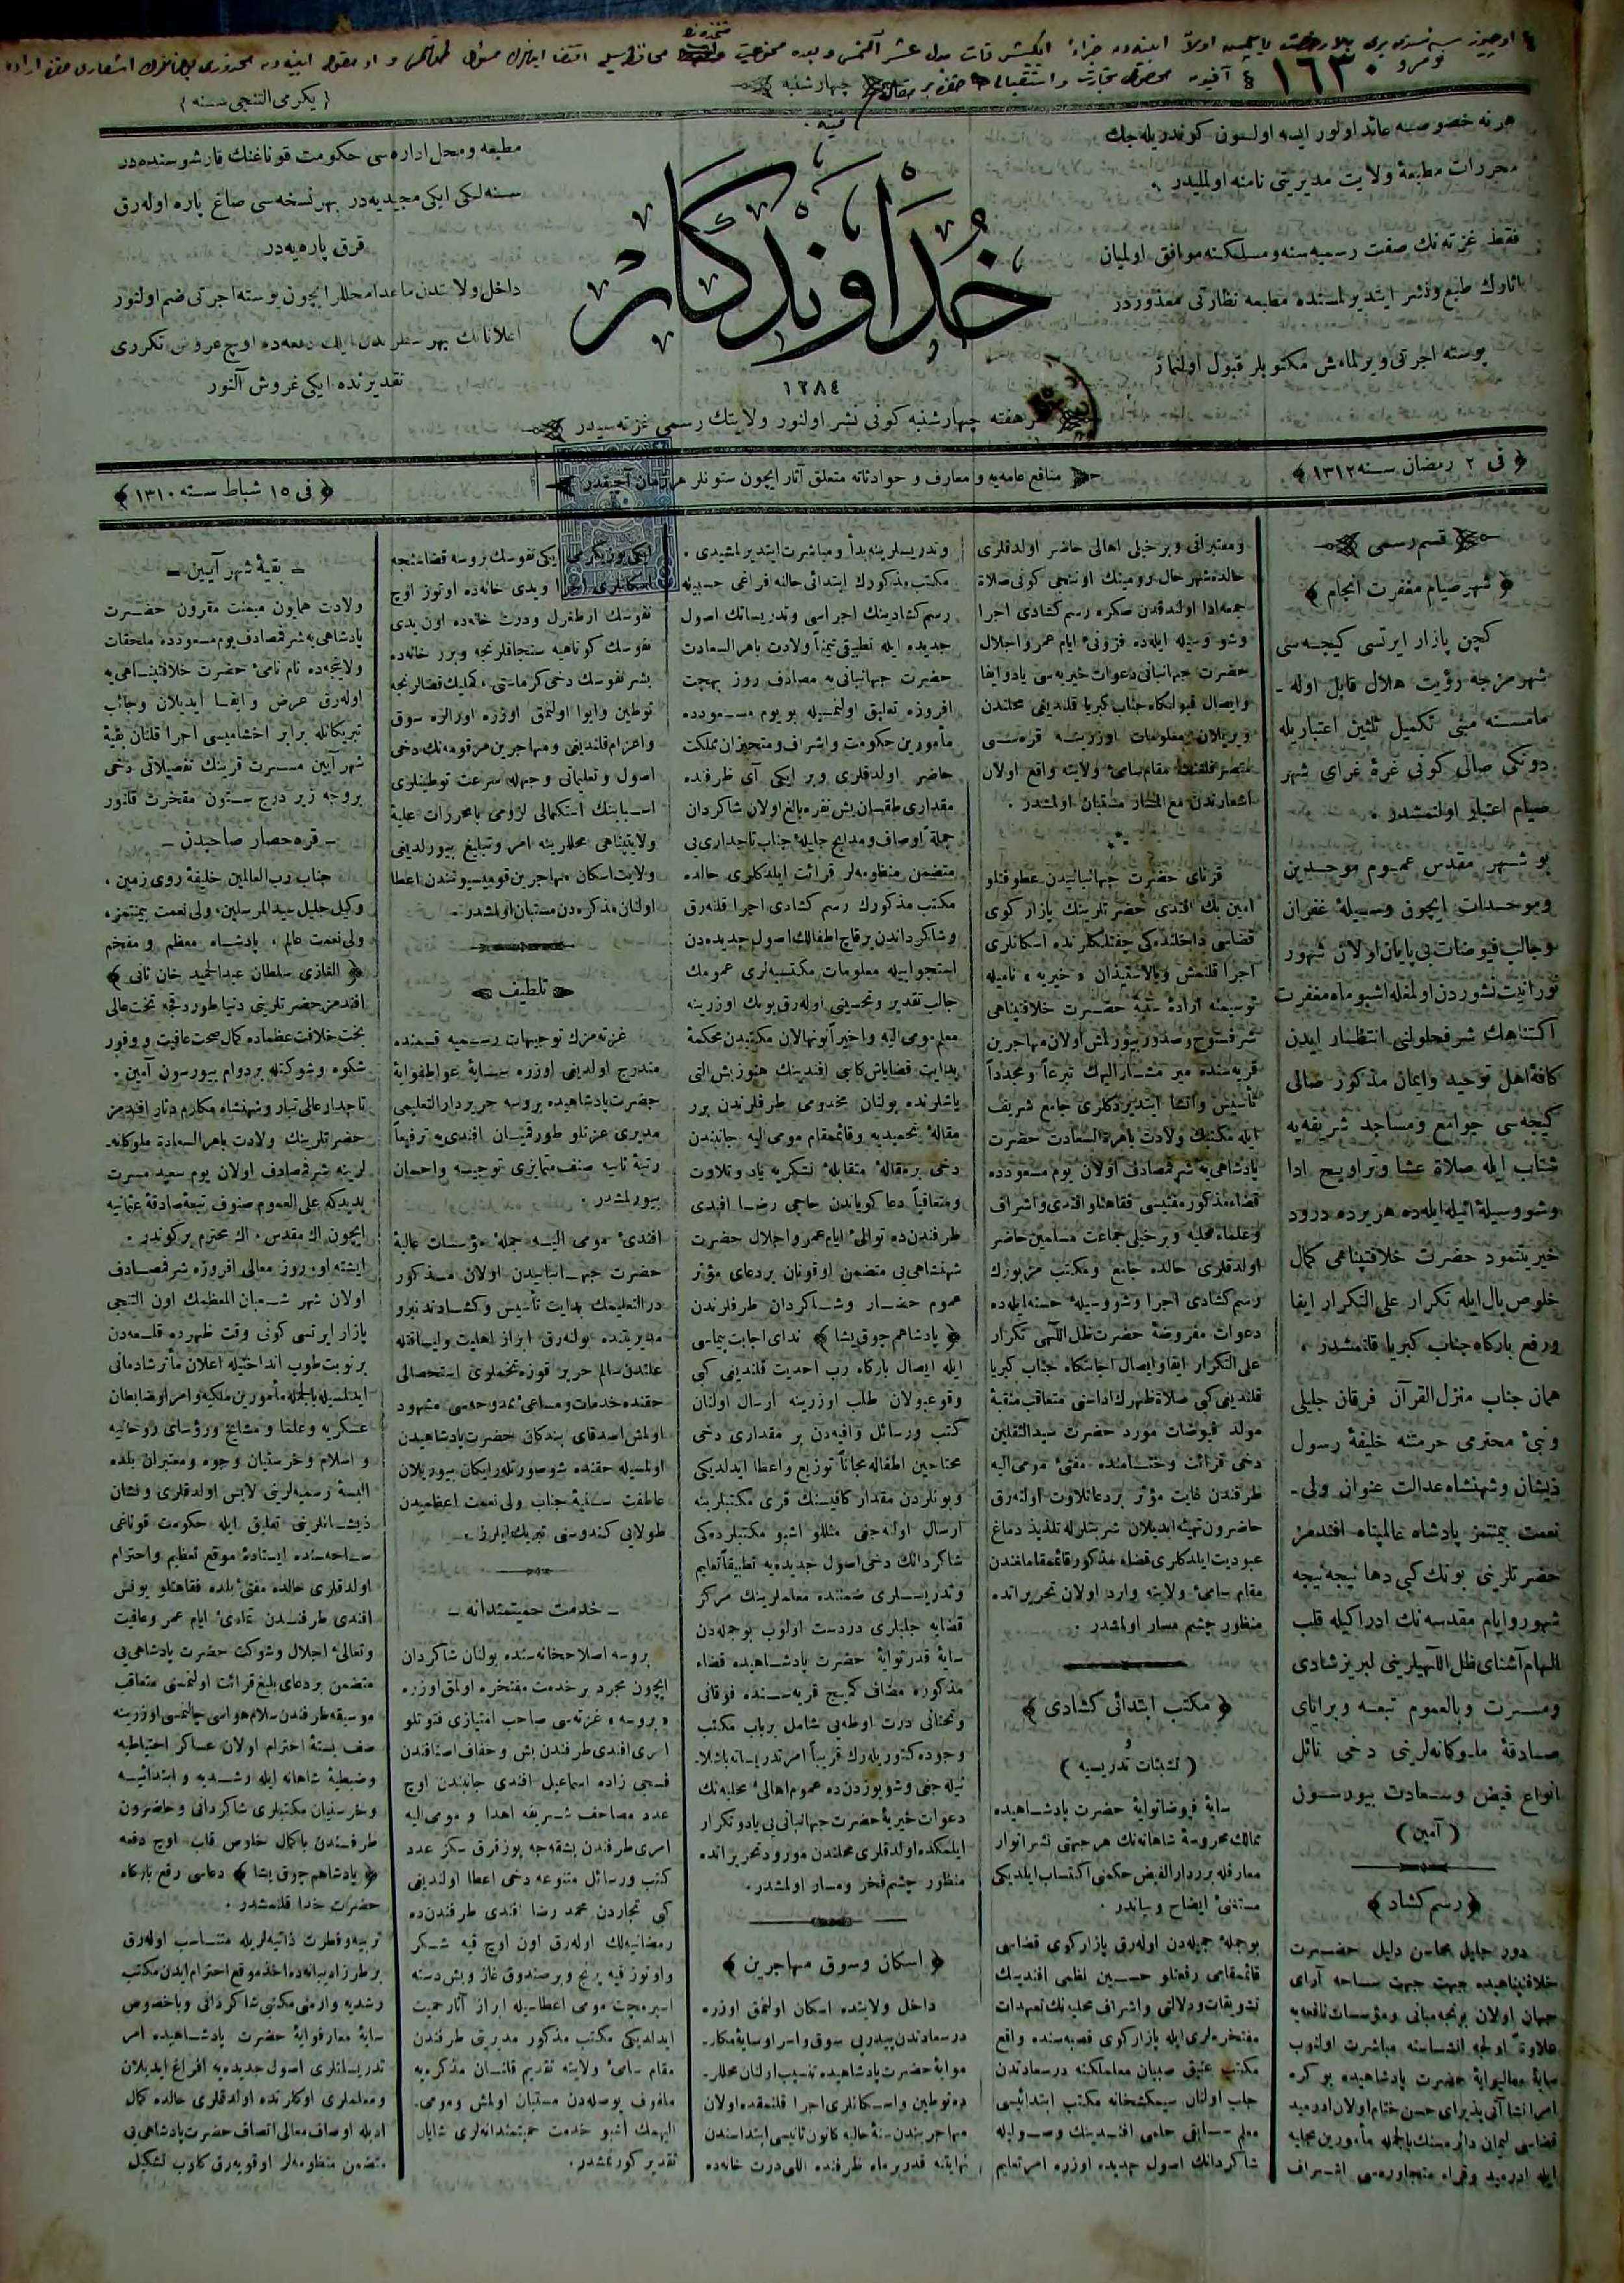 نومرو ١٦٣٠
چهارشنبه
﴿ یكرمی التنجی سنه ﴾
هر نه خصوصه عائد اولور ایسه اولسون كوندریله جك
محررات مطبعهٔ ولایت مدیریتی نامنه اولملیدر .
فقط غزته نك صفت رسمیه سنه و مسلكنه موافق اولمیان
آثارك طبع و نشر ایتدیرلمسنده مطبعه نظارتی معذوردر
پوسته اجرتی ویرلمامش مكتوبلر قبول اولنماز
خُدَاوَندكَار
١٢٨٤
هر هفته چهارشنبه كونی نشر اولنور ولایتك رسمی غزته سیدر
مطبعه و محل اداره سی حكومت قوناغنك قارشوسنده در
سنه لكی ایكی مجیدیه در بهر نسخه سی صاغ پاره اوله رق
قرق پاره یه در
داخل ولایتدن ماعدا محللر ایچون پوسته اجرتی ضم اولنور
اعلاناتك بهر سطرندن ایلك دفعه ده اوچ غروش تكرری
تقدیرنده ایكی غروش آلنور
﴿ فی ٢ رمضان سنه ١٣١٢ ﴾
منافع عامه یه و معارف و حوادثاته متعلق آثار ایچون ستونلر هر زمان آچیقدر
﴿ فی ١٥ شباط سنه ١٣١٠ ﴾
قسم رسمی
﴿ شهر صیام مغفرت انجام ﴾
كچن پازار ایرتسی كیجه سی
شهرمزجه رؤیت هلال قابل اوله ـ
مامسنه مبنی تكمیل ثلثین اعتباریله
دونكی صالی كونی غرهٔ غرای شهر
صیام اعتبار اولنمشدر .
بو شهر مقدس عموم موحدین
و موحدات ایچون وسیلهٔ غفران
و جالب فیوضات بی پایان اولان شهور
نورانیت نشوردن اولمغله اشبو ماه مغفرت
اكتناهك شرفحلولنی انتظار ایدن
كافهٔ اهل توحید و ایمان مذكور صالی
كیجه سی جوامع و مساجد شریفه یه
شتاب ایله صلاة عشا و تراویح ادا
و شو وسیلهٔ اثیله ایله ده هر یرده درود
خیریتنمود حضرت خلافتپناهی كمال
خلوص بال ایله تكرار علی التكرار ایفا
و رفع باركاه جناب كبریا قلنمشدر .
همان جناب منزل القرآن فرقان جلیلی
و نبیٔ محترمی حرمتنه خلیفهٔ رسول
ذیشان و شهنشاه عدالت عنوان ولی ـ
نعمت بیمنتمز پادشاه عالمپناه افندمز
حضرتلرینی بونك كبی دها نیجه نیجه
شهور و ایام مقدسه نك ادراكیله قلب
الهام آشنای ظل اللهیلرینی لبریز شادی
و مسرت و بالعموم تبعه و برایای
صادقهٔ ملوكانه لرینی دخی نائل
انواع فیض و سعادت بیورسون
( آمین )
﴿ رسم كشاد ﴾
دور جلیل محاسن دلیل حضرت
خلافتپناهیده جهت جهت ساحه آرای
جهان اولان برنجه مبانی و مؤسسات نافعه یه
علاوةً اولجه انشاسنه مباشرت اولنوب
سایهٔ معالیوایهٔ حضرت پادشاهیده بو كره
امر انشا آتی پذیرای حسن ختام اولان ادرمید
قضاسی لیمان دائره سنك بالجمله مأمورین محلیه
ایله ادرمید و قراء متجاوره سی اشراف
و معتبرانی و بر خیلی اهالی حاضر اولدقلری
حالده شهر حال رومینك اوننجی كونی صلاة
جمعه ادا اولندقدن صكره رسم كشادی اجرا
و شو وسیله ایله ده فزونیٔ ایام عمر و اجلال
حضرت جهانبانی دعوات خیریه سی یاد و ایفا
و ایصال قبولكاه جناب كبریا قلندیغی محلندن
ویریلان معلومات اوزرینه قره سی
متصرفلغنك مقام سامیٔ ولایته واقع اولان
اشعارندن مع المسار مستبان اولمشدر .
قرنای حضرت جهانبانیدن عطوفتلو
امین بك افندی حضرتلرینك پازار كوی
قضاسی داخلنده كی چفتلكلرنده اسكانلری
اجرا قلنمش و بالاستیذان « خیریه » نامیله
توسیمنه ارادهٔ سنیهٔ حضرت خلافتپناهی
شرفسنوح و صدور بیورلمش اولان مهاجرین
قریه سنده میر مشار الیهك تبرعاً و مجدداً
تأسیس و انشا ایتدیردكلری جامع شریف
ایله مكتبك ولادت باهر السعادت حضرت
پادشاهی یه شرفمصادف اولان یوم مسعودده
قضاء مذكور مفتیسی فقاهتلو افندی و اشراف
و علماء محلیه و بر خیلی جماعت مسلمین حاضر
اولدقلری حالده جامع و مكتب مزبورك
رسم كشادی اجرا و شو وسیلهٔ حسنه ایله ده
دعوات مفروضهٔ حضرت ظل اللهی تكرار
علی التكرار ایفا و ایصال اجابتكاه جناب كبریا
قلندیغی كبی صلاة ظهرك اداسی متعاقب منقبهٔ
مولد فیوضات مورد حضرت سید الثقلین
دخی قرائت و ختامنده مفتیٔ مومی الیه
طرفندن غایت مؤثر بر دعا تلاوت اولنه رق
حاضرون تهیئه ایدیلان شربتلرله تلذیذ دماغ
عبودیت ایلدكلری قضاء مذكور قائمقاملغندن
مقام سامیٔ ولایته وارد اولان تحریراتده
منظور چشم مسار اولمشدر .
﴿ مكتب ابتدائی كشادی ﴾
و
( تشبثات تدریسیه )
سایهٔ فیوضاتوایهٔ حضرت پادشاهیده
ممالك محروسهٔ شاهانه نك هر جهتی نشر انوار
معارفله بر دار الفیض حكمنی اكتساب ایلدیكی
مستغنیٔ ایضاح و بیاندر .
بو جملهٔ جمیله دن اوله رق پازاركوی قضاسی
قائمقامی رفعتلو حسین لطفی افندینك
تشویقات و دلالتی و اشراف محلیه نك تعهدات
مفتخره لری ایله پازاركوی قصبه سنده واقع
مكتب عتیق صبیان معلملكنه درسعادتدن
جلب اولنان سیمكشخانه مكتب ابتدائیسی
معلم سابقی حلمی افندینك وصولیله
شاكردانك اصول جدیده اوزره امر تعلیم
و تدریسلرینه بدأ و مباشرت ایتدیرلمشیدی .
مكتب مذكورك ابتدائی حالنه افراغی حسبیله
رسم كشادینك اجراسی و تدریساتك اصول
جدیده ایله تطبیقی تیمناً ولادت باهر السعادت
حضرت جهانبانی یه مصادف روز بهجت
افروزه تعلیق اولنمسیله بو یوم مسعودده
مأمورین حكومت و اشراف و متحیزان مملكت
حاضر اولدقلری و بر ایكی آی ظرفنده
مقداری طقسان بش نفره بالغ اولان شاكردان
جملةً اوصاف و مدایح جلیلهٔ جناب تاجداری یی
متضمن منظومه لر قرائت ایلدكلری حالده
مكتب مذكورك رسم كشادی اجرا قلنه رق
و شاكرداندن بر قاچ اطفالك اصول جدیده دن
استجوابیله معلومات مكتسبه لری عمومك
جالب تقدیر و تحسینی اوله رق بونك اوزرینه
معلم مومی الیه و اخیراً نونهالان مكتبدن محكمهٔ
بدایت قضایاش كاتبی افندینك هنوز بش التی
یاشلرنده بولنان مخدومی طرفلرندن برر
مقالهٔ تحمیدیه و قائمقام مومی الیه جانبندن
دخی بر مقالهٔ متقابلهٔ تشكریه یاد و تلاوت
و متعاقباً دعا كویاندن حاجی رضا افندی
طرفندن ده توالیٔ ایام عمر و اجلال حضرت
شهنشاهی یی متضمن اوقونان بر دعای مؤثر
عموم حضار و شاكردان طرفلرندن
﴿ پادشاهم چوق یشا ﴾ ندای اجابت پیماسی
ایله ایصال باركاه رب احدیت قلندیغی كبی
وقوعبولان طلب اوزرینه ارسال اولنان
كتب و رسائل وافیه دن بر مقداری دخی
محتاجین اطفاله مجاناً توزیع و اعطا ایدلدیكی
و بونلردن مقدار كافیسنك قری مكتبلرینه
ارسال اوله جغی مثللو اشبو مكتبلرده كی
شاكردانك دخی اصول جدیده یه تطبیقاً تعلیم
و تدریسلری ضمننده معلملرینك مركز
قضایه جلبلری دردست اولوب بو جمله دن
سایهٔ قدرتوایهٔ حضرت پادشاهیده قضاء
مذكوره مضاف كمیچ قریه سنده فوقانی
و تحتانی درت اوطه یی شامل بر باب مكتب
وجوده كتوریله رك قریباً امر تدریساته باشلا ـ
نیله جغی و شو یوزدن ده عموم اهالیٔ محلیه نك
دعوات خیریهٔ حضرت جهانبانی یی یاد و تكرار
ایلمكده اولدقلری محلندن مورود تحریراتده
منظور چشم فخر و مسار اولمشدر .
﴿ اسكان و سوق مهاجرین ﴾
داخل ولایتده اسكان اولنمق اوزره
درسعادتدن پیدرپی سوق و اسرا و سایهٔ مكار ـ
موایهٔ حضرت پادشاهیده تنسیب اولنان محللر ـ
ده توطین و اسكانلری اجرا قلنمقده اولان
مهاجریندن سنهٔ حالیه كانون ثانیسی ابتداسندن
نهایتنه قدر بر ماه ظرفنده اللی درت خانه ده
ایكی یوز یكرمی ایكی نفوسك بروسه قضاسنجه
اسكانلری اجرا و یدی خانه ده اوتوز اوچ
نفوسك ارطغرل و درت خانه ده اون یدی
نفوسك كوتاهیه سنجاقلرنجه و برر خانه ده
بشر نفوسك دخی كرماستی ، كملیك قضالرنجه
توطین و ایوا اولنمق اوزره اورالره سوق
و اعزام قلندیغی و مهاجرین مرقومه نك دخی
اصول و تعلیماتی وجهله سرعت توطینلری
اسبابنك استكمالی لزومی با محررات علیهٔ
ولایتپناهی محللرینه امر و تبلیغ بیورلدیغی
ولایت اسكان مهاجرین قومیسیونندن اعطا
اولنان مذكره دن مستبان اولمشدر .
تلطیف
غزته مزك توجیهات رسمیه قسمنده
مندرج اولدیغی اوزره سایهٔ عواطفوایهٔ
حضرت پادشاهیده بروسه حریر دار التعلیمی
مدیری عزتلو طورقمیان افندی یه ترفیعاً
رتبهٔ ثانیه صنف متمایزی توجیه و احسان
بیورلمشدر .
افندیٔ مومی الیه جملهٔ مؤسسات عالیهٔ
حضرت جهانبانیدن اولان مذكور
در التعلیمك بدایت تأسیس و كشادندنبرو
مدیریتنده بوله رق ابراز اهلیت و لیاقتله
علتدن سالم حریر قوزه تخملری استحصالی
حقنده خدمات و مساعیٔ ممدوحه سی مشهود
اولمش اصدقای بندكان حضرت پادشاهیدن
اولمسیله حقنده شو صورتله رایكان بیوریلان
عاطفت سنیهٔ جناب ولی نعمت اعظمیدن
طولایی كندوسنی تبریك ایلرز .
ـ خدمت حمیتمندانه ـ
بروسه اصلاحخانه سنده بولنان شاكردان
ایچون مجرد بر خدمت مفتخره اولمق اوزره
« بروسه » غزته سی صاحب امتیازی فتوتلو
امری افندی طرفندن بش و خفاف اصنافندن
فسجی زاده اسماعیل افندی جانبندن اوچ
عدد مصاحف شریفه اهدا و مومی الیه
امری طرفندن بشقه جه یوز قرق سكز عدد
كتب و رسائل متنوعه دخی اعطا اولندیغی
كبی تجاردن محمد رضا افندی طرفندن ده
رمضانیه لك اوله رق اون اوچ قیه شكر
و اوتوز قیه پرنج و بر صندوق غاز و بش دسته
اسپرمچت مومی اعطاسیله ابراز آثار حمیت
ایدلدیكی مكتب مذكور مدیریتی طرفندن
مقام سامیٔ ولایته تقدیم قلنان مذكره یه
ملفوف پوصله دن مستبان اولمش و مومی ـ
الیهمك اشبو خدمت حمیتمندانه لری شایان
تقدیر كورلمشدر .
ـ بقیهٔ شهر آیین ـ
ولادت همایون میمنت مقرون حضرت
پادشاهی یه شرفمصادف یوم مسعودده ملحقات
ولایتجه ده نام نامیٔ حضرت خلافتپناهی یه
اوله رق عرض و ایفا ایدیلان وجائب
تبریكاتله برابر اخشامیسی اجرا قلنان بقیهٔ
شهر آیین مسرت قرینك تفصیلاتی دخی
بروجه زیر درج ستون مفخرت قلنور
ـ قره حصار صاحبدن ـ
جناب رب العالمین خلیفهٔ روی زمین ،
وكیل جلیل سید المرسلین ، ولی نعمت بیمنتمز ،
ولی نعمت عالم ، پادشاه معظم و مفخم
﴿ الغازی سلطان عبد الحمید خان ثانی ﴾
افندمز حضرتلرینی دنیا طوردقجه تخت عالی
بخت خلافت عظماده كمال صحت عافیت و وفور
شكوه و شوكتله بر دوام بیورسون آمین .
تاجداو عالی تبار و شهنشاه مكارم دثار افندمز
حضرتلرینك ولادت باهر السعادة ملوكانه ـ
لرینه شرفمصادف اولان یوم سعید مسرت
پدیدكه علی العموم صنوف تبعهٔ صادقهٔ عثمانیه
ایچون اك مقدس ، اك محترم بر كوندر .
ایشته او ، روز معالی افروزه شرفمصادف
اولان شهر شعبان المعظمك اون التنجی
پازار ایرتسی كونی وقت ظهرده قلعه دن
بر نوبت طوب انداختیله اعلان مأثر شادمانی
ایدلمسیله بالجمله مأمورین ملكیه و امرا و ضابطان
عسكریه و علما و مشایخ و رؤسای روحانیه
و اسلام و خرستیان وجوه و معتبران بلده
البسهٔ رسمیه لرینی لابس اولدقلری و نشان
ذیشانلرینی تعلیق ایله حكومت قوناغی
ساحه سنده ایستادهٔ موقع تعظیم و احترام
اولدقلری حالده مفتیٔ بلده فقاهتلو یونس
افندی طرفندن تمادیٔ ایام عمر و عافیت
و تعالیٔ اجلال و شوكت حضرت پادشاهی یی
متضمن بر دعای بلیغ قرائت اولنمسی متعاقب
موسیقه طرفندن سلام هواسی چالنمسی اوزرینه
صف بستهٔ احترام اولان عساكر احتیاطیه
و ضبطیهٔ شاهانه ایله رشدیه و ابتدائیه
و خرستیان مكتبلری شاكردانی و حاضرون
طرفندن با كمال خلوص قلب اوچ دفعه
﴿ پادشاهم چوق یشا ﴾ دعاسی رفع باركاه
حضرت خدا قلنمشدر .
تربیه و فطرت ذاتیه لریله متناسب اوله رق
بر طرز ادیبانه ده اخذ موقع احترام ایدن مكتب
رشدیه و ارمنی مكتبی شاكردانی و باخصوص
سایهٔ معارفوایهٔ حضرت پادشاهیده امر
تدریساتلری اصول جدیده یه افراغ ایدیلان
و معلملری اوكلرنده اولدقلری حالده كمال
ادبله اوصاف معالی اتصاف حضرت پادشاهی یی
متضمن منظومه لر اوقویه رق كلوب تشكیل